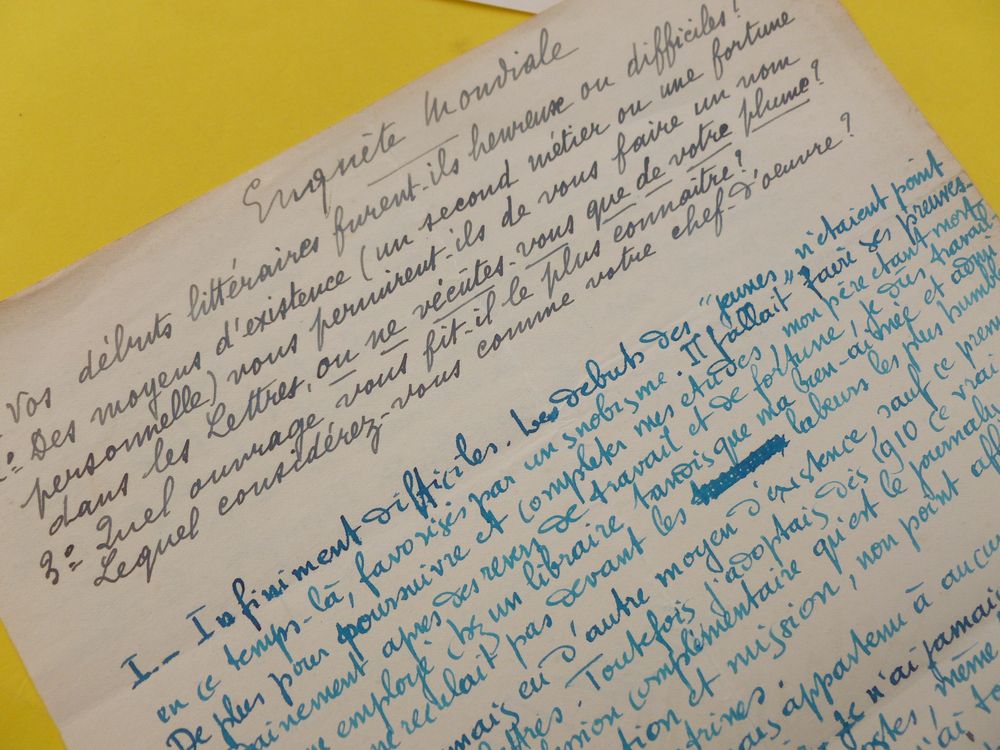 Enquête Mondiale
Vos débuts littéraires furent-ils heureux ou difficiles?
2º Des moyens d'existence (un second métier ou une fortune
personnelle) vous permirent-ils de vous faire un nom
dans les Lettres, ou ne vécûtes-vous que de votre plume?
3º Quel ouvrage vous fit-il le plus connaître?
Lequel considérez-vous comme votre chef-d'oeuvre?
I_ Infiniment difficiles. Les débuts des "jeunes" n'étaient point
en ce temps-là, favorisés par un snobisme. Il fallait faire ses preuves.
De plus pour poursuivre et compléter mes études mon père étant mort
après des revers de travail et de fortune, je dûs
employé chez un libraire tandis que ma bien-aimée et
reculait pas devant les labeurs les plus
eu d'autre moyen d'existence, sauf ce
Toutefois j'adoptais dès 1910 ce vrai
complémentaire qu'est le
et mission, non point
appartenu à
je n'ai jamais
même